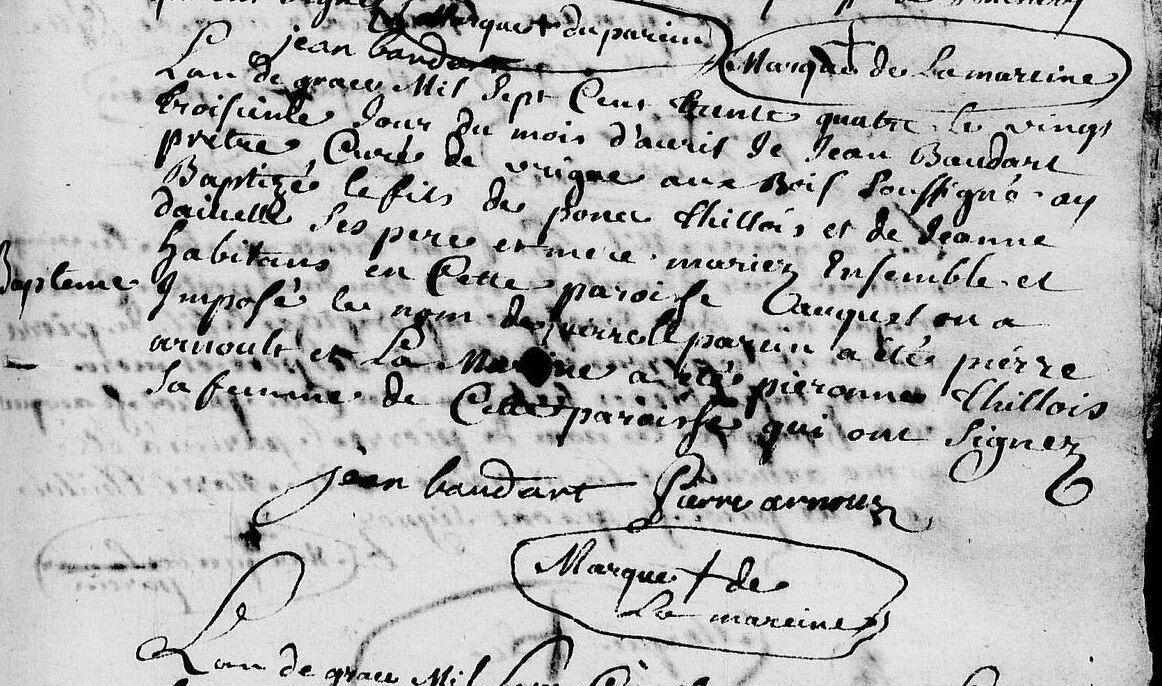 Marque du parein
jean baudart
Marque de La mareine
Lan de grace Mil Sept Cent trente quatre le vingt
troisieme Jour du mois d'avril Je Jean Baudart
prêtre Curé de vrigne aux Bois Soussigné ay
Baptizé le fils de ponce thillois et de Jeanne
dainelle Ses pere et mere mariez Ensemble et
habitans en Cette paroisse Lauquel on a
Imposé le nom de pierre parein a été pierre
arnoult et La Mareine a été pieronne thillois
Sa femme de Cette paroisse qui ont Signez
Bapteme
jean baudart Pierre arnoul
Marque de
La mareine
Lan de grace Mil